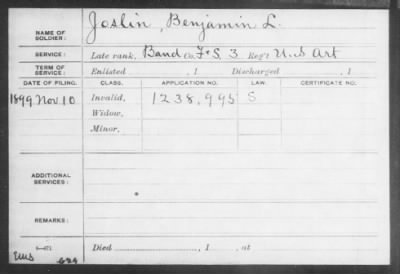 NAME OF SOLDIER: Joslin, Benjamin L.
SERVICE: Late rank, Band Co. F&S, 3 Reg't U.S Art
TERM OF SERVICE: Enlisted , 1 Discharged , 1
DATE OF FILING. CLASS. APPLICATION NO. LAW. CERTIFICATE NO.
1899 Nov. 10 Invalid, 1238,995 S
Widow,
Minor,
ADDITIONAL SERVICES:
REMARKS:
Died , 1 , at